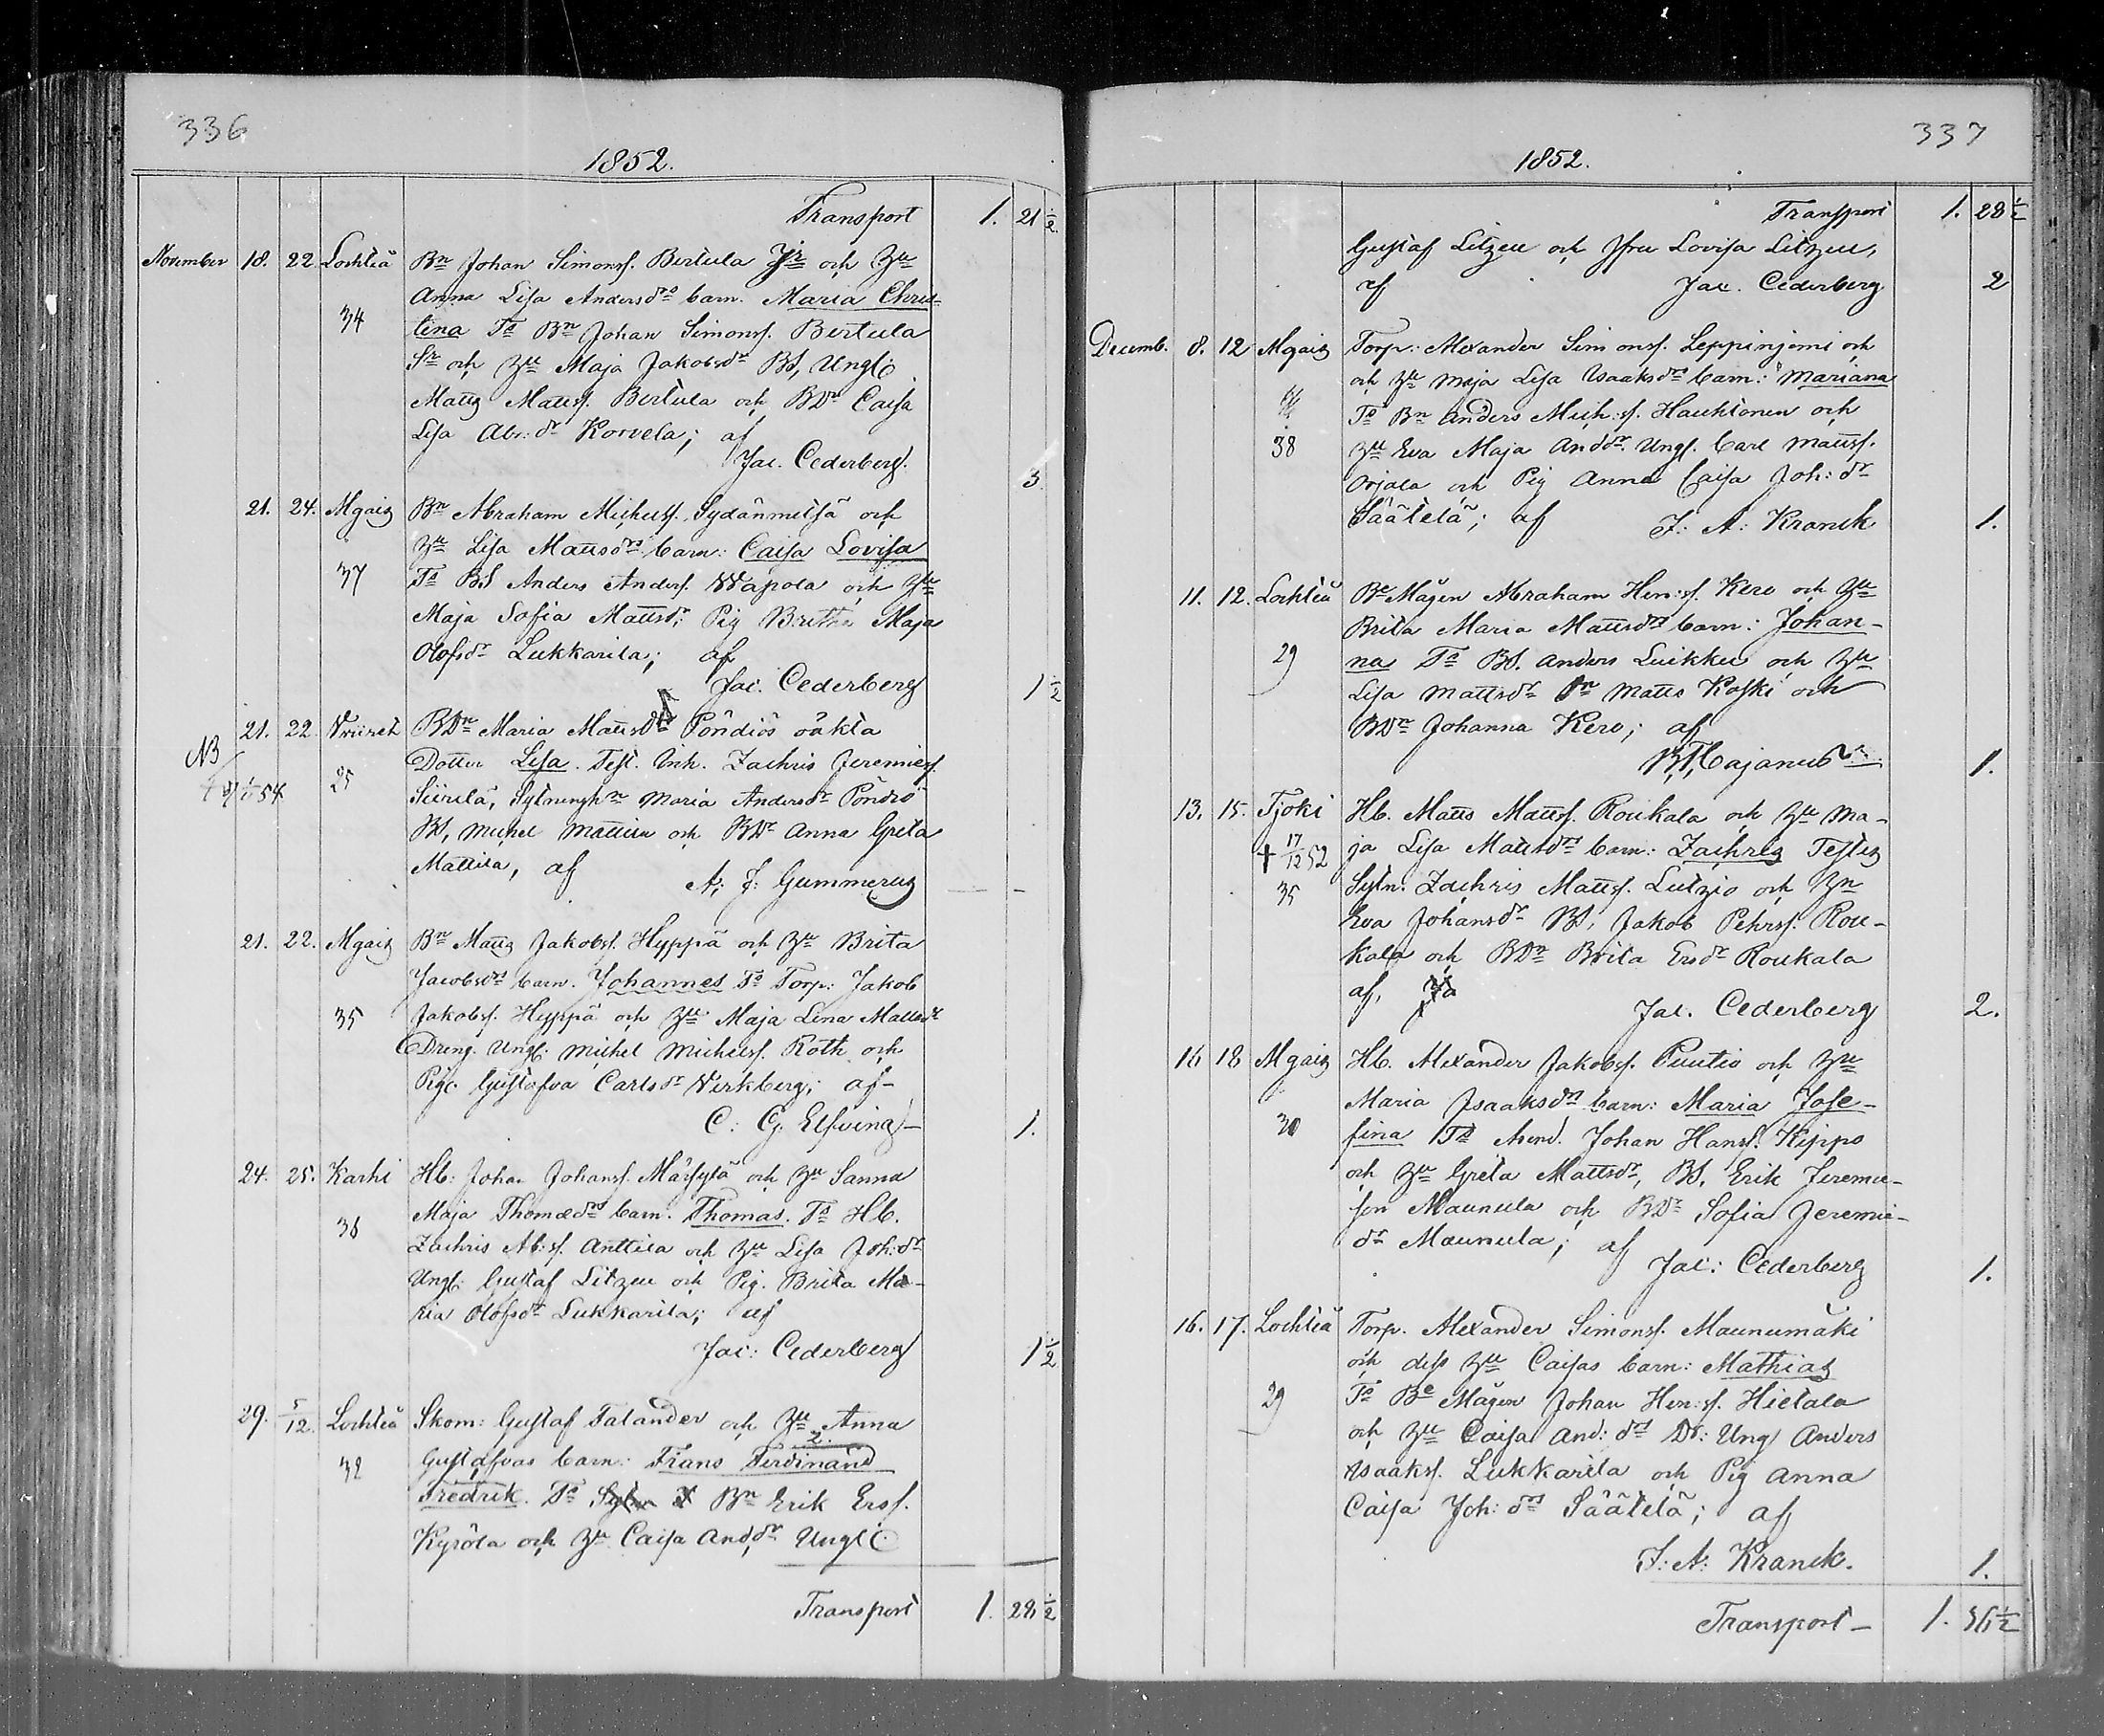 336
1852.
Transport 1. 21 1/2
November 18. 22. Lochteå Bn Johan Simonss. Bertula Jr och Hu
Anna Lisa Andersdrs barn. Maria Chris-
34 tina Ts Bn Johan Simonss. Bertula
Sr och Hu Maja Jakobsdr BS, Ungl:
Matts Mattss. Bertula och BDr Caisa
Lisa Abr: dr Korvela; af
Jac. Cederberg. 3.
21. 24. Mgais Bn Abraham Michelss. Sydänmetsä och
Hu Lisa Mattsdrs barn: Caisa Lovisa
37 Ts BS Anders Anderss. Wapola och Hu
Maja Sofia Mattsdr; Pig Britha Maja
Olofsdr Lukkarila; af
Jac. Cederberg 1 1/2
21. 22. BDn Maria Mattsdrs Pöndiös oäkta
NB
Dotter Lisa. Test. Inh. Zachris Jeremiess.
54 25 Siirilä, Sytninghn Maria Andersdr Pöndiö
BS, Michel Mattila och BDr Anna Greta
Mattila, af A: F: Gummerus — -
21. 22. Mgais Bn Matts Jakobss. Hyppä och Hu Brita
Jacobsdrs barn. Johannes Ts Torp: Jakob
35 Jakobss. Hyppä och Hu Maja Lena Mattsdr
Dreng. Ungl: Michel Michelss. Roth och
Pig. Gustafva Carlsdr Virkberg; af-
C: G. Elfving- 1.
24. 25. Karhi Hb: Johan Johanss. Märsylä och Hu Sanna
Maja Thomædrs barn. Thomas. Ts Hb.
36 Zachris Ab: s. Anttila och Hu Lisa Joh: dr
Ungl: Gustaf Litzen och Pig. Brita Ma-
ria Olofsdr Lukkarila; af
Jac: Cederberg 1 1/2
29. 5/12. Lochteå Skom: Gustaf Talander och Hu Anna
2.
32 Gustafvas barn: Frans Ferdinand
Fredrik. Ts Bn Erik Erss.
Kyrölä och Hu Caisa And,dr Ungl:
Transport 1. 28 1/2
337
1852.
Transport 1. 28 1/2
Gustaf Litzen och Jfru Lovisa Litzen,
af Jac. Cederberg 2
Decemb. 8. 12 Mgais Torp: Alexander Simonss. Leppinjemi och
och Hu Maja Lisa Isaaksdrs barn: Mariana
Ts Bn Anders Mich: s. Hauhtonen och
38 Hu Eva Maja And dr. Ungl. Carl Mattss.
Orjala och Pig Anna Caisa Joh: dr
Säätelä; af J: A: Kranck 1.
11. 12. Lochteå Be Mågen Abraham Hen: s. Kero och Hu
Brita Maria Mattsdrs barn: Johan-
29 na Ts BS. Anders Luikku och Hu
Lisa Mattsdr Dr Matts Koski och
BDr Johanna Kero; af
Cajanus 1.
13. 15. Tjoki Hb. Matts Mattss. Roukala och Hu Ma-
† 17/12 52 ja Lisa Mattsdrs barn: Zachris Testes
35 Sytn. Zachris Mattss. Lutzio och Hn
Eva Johansdr BS, Jakob Pehrss. Rou-
kala och BDr Brita Ersdr Roukala
af,
Jac. Cederberg 2.
16 18 Mgais Hb. Alexander Jakobss. Puutio och Hu
Maria Isaaksdrs barn: Maria Jose-
30 fina Ts Arend. Johan Hanss. Kippo
och Hu Greta Mattsdr, BS, Erik Jeremie-
son Maunula och BDr Sofia Jeremie-
dr Maunula; af
Jac: Cederberg 1.
16. 17. Lochteå Torp. Alexander Simonss. Maunumäki
och dess Hu Caisas barn: Mathias
29 Ts Be Mågen Johan Hen: s. Hietala
och Hu Caisa And: drs Dr: Ungl Anders
Isaakss. Lukkarila och Pig Anna
Caisa Joh: drs Säätelä; af
J: A: Kranck. 1.
Transport- 1. 36 1/2